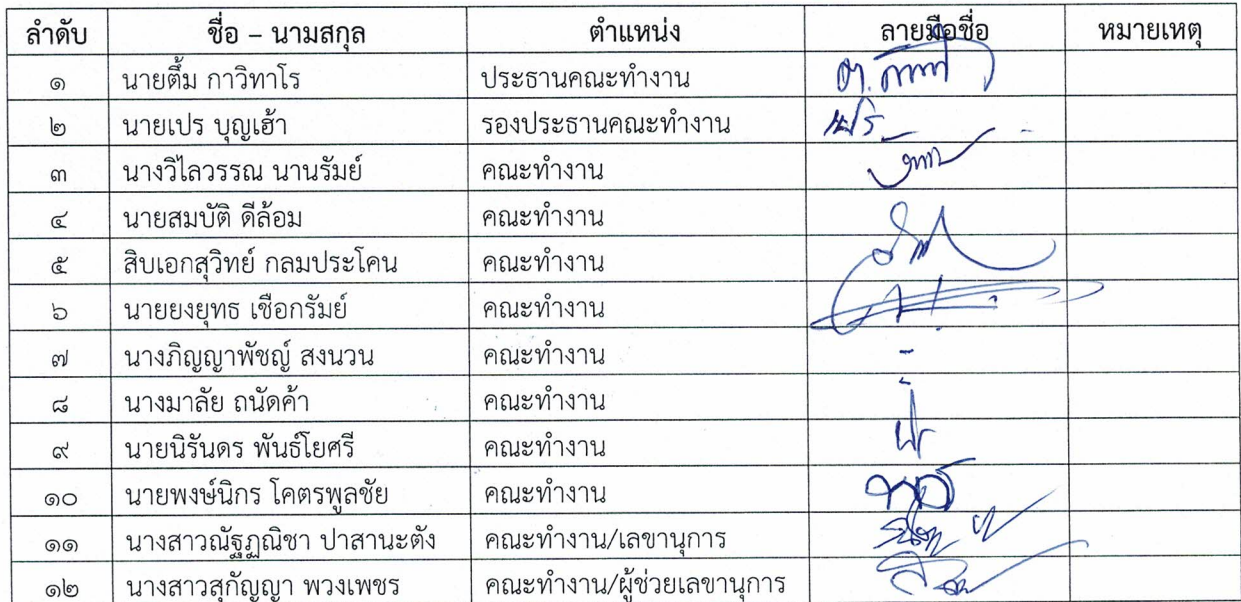 ลำดับ ชื่อ – นามสกุล ตำแหน่ง ลายมือชื่อ หมายเหตุ
๑ นายตึ้ม กาวิทาโร ประธานคณะทำงาน
๒ นายเปร บุญเฮ้า รองประธานคณะทำงาน
๓ นางวิไลวรรณ นานรัมย์ คณะทำงาน
๔ นายสมบัติ ดีล้อม คณะทำงาน
๕ สิบเอกสุวิทย์ กลมประโคน คณะทำงาน
๖ นายยงยุทธ เชือกรัมย์ คณะทำงาน
๗ นางภิญญาพัชญ์ สงนวน คณะทำงาน -
๘ นางมาลัย ถนัดค้า คณะทำงาน -
๙ นายนิรันดร พันธ์โยศรี คณะทำงาน
๑๐ นายพงษ์นิกร โคตรพูลชัย คณะทำงาน
๑๑ นางสาวณัฐฏณิชา ปาสานะตัง คณะทำงาน/เลขานุการ
๑๒ นางสาวสุกัญญา พวงเพชร คณะทำงาน/ผู้ช่วยเลขานุการ